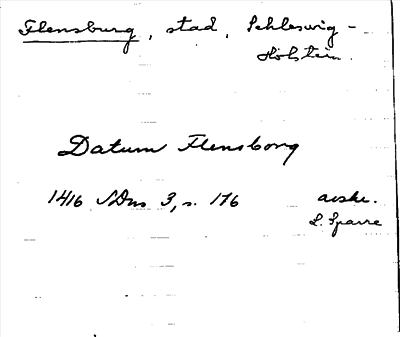 Flensburg, stad, Schleswig-
Holstein.
Datum Flensborg
1416 SDns 3, s. 176 avskr.
L. Sparre